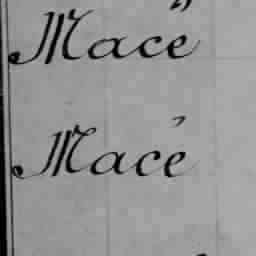 Macé
Macé